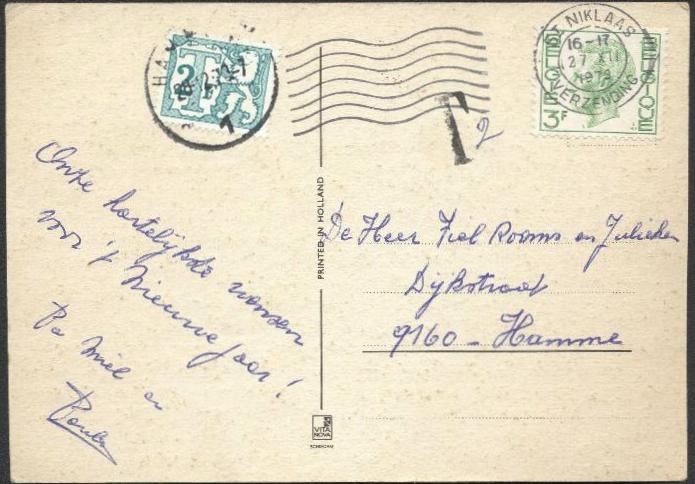 HA
2
T
28-12-73-7
1
T
2
ST NIKLAAS
16-17
27 XII
1973
VERZENDING
BELGIE
BELGIQUE
3F
Onze hartelijkste wensen
voor 't Nieuwe Jaar!
Pa Miel en
PRINTED IN HOLLAND
De Heer Fiel Rooms en Julieken
Dijkstraat
9160 - Hamme
VITA
NOVA
SCHIEDAM